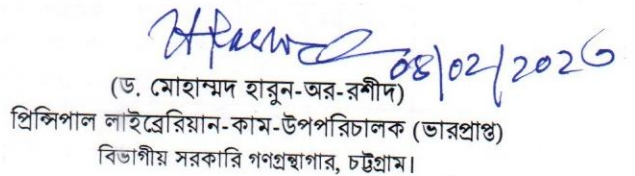 08/02/2026
(ড. মোহাম্মদ হারুন-অর-রশীদ)
প্রিন্সিপাল লাইব্রেরিয়ান-কাম-উপপরিচালক (ভারপ্রাপ্ত)
বিভাগীয় সরকারি গণগ্রন্থাগার, চট্টগ্রাম।